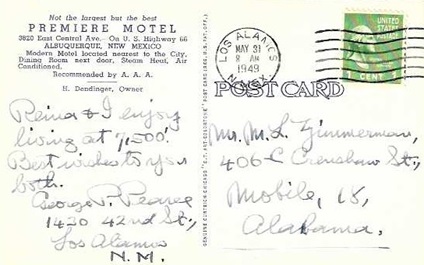 Not the largest but the best
PREMIERE MOTEL
3820 East Central Ave. - On U. S. Highway 66
ALBUQUERQUE, NEW MEXICO
Modern Motel located nearest to the City,
Dining Room next door, Steam Heat, Air
Conditioned.
Recommended by A. A. A.
H. Dendinger, Owner
Reina & I enjoy
living at 7,500'.
Best wishes to you
both.
George P. Pearce
1430 42nd St.,
Los Alamos
N. M.
LOS ALAMOS
MAY 31
8 AM
1949
N. MEX.
UNITED STATES
POSTAGE
1 CENT 1
POST CARD
Mr. M. L. Zimmerman,
406 Crenshaw St.,
Mobile, 18,
Alabama.